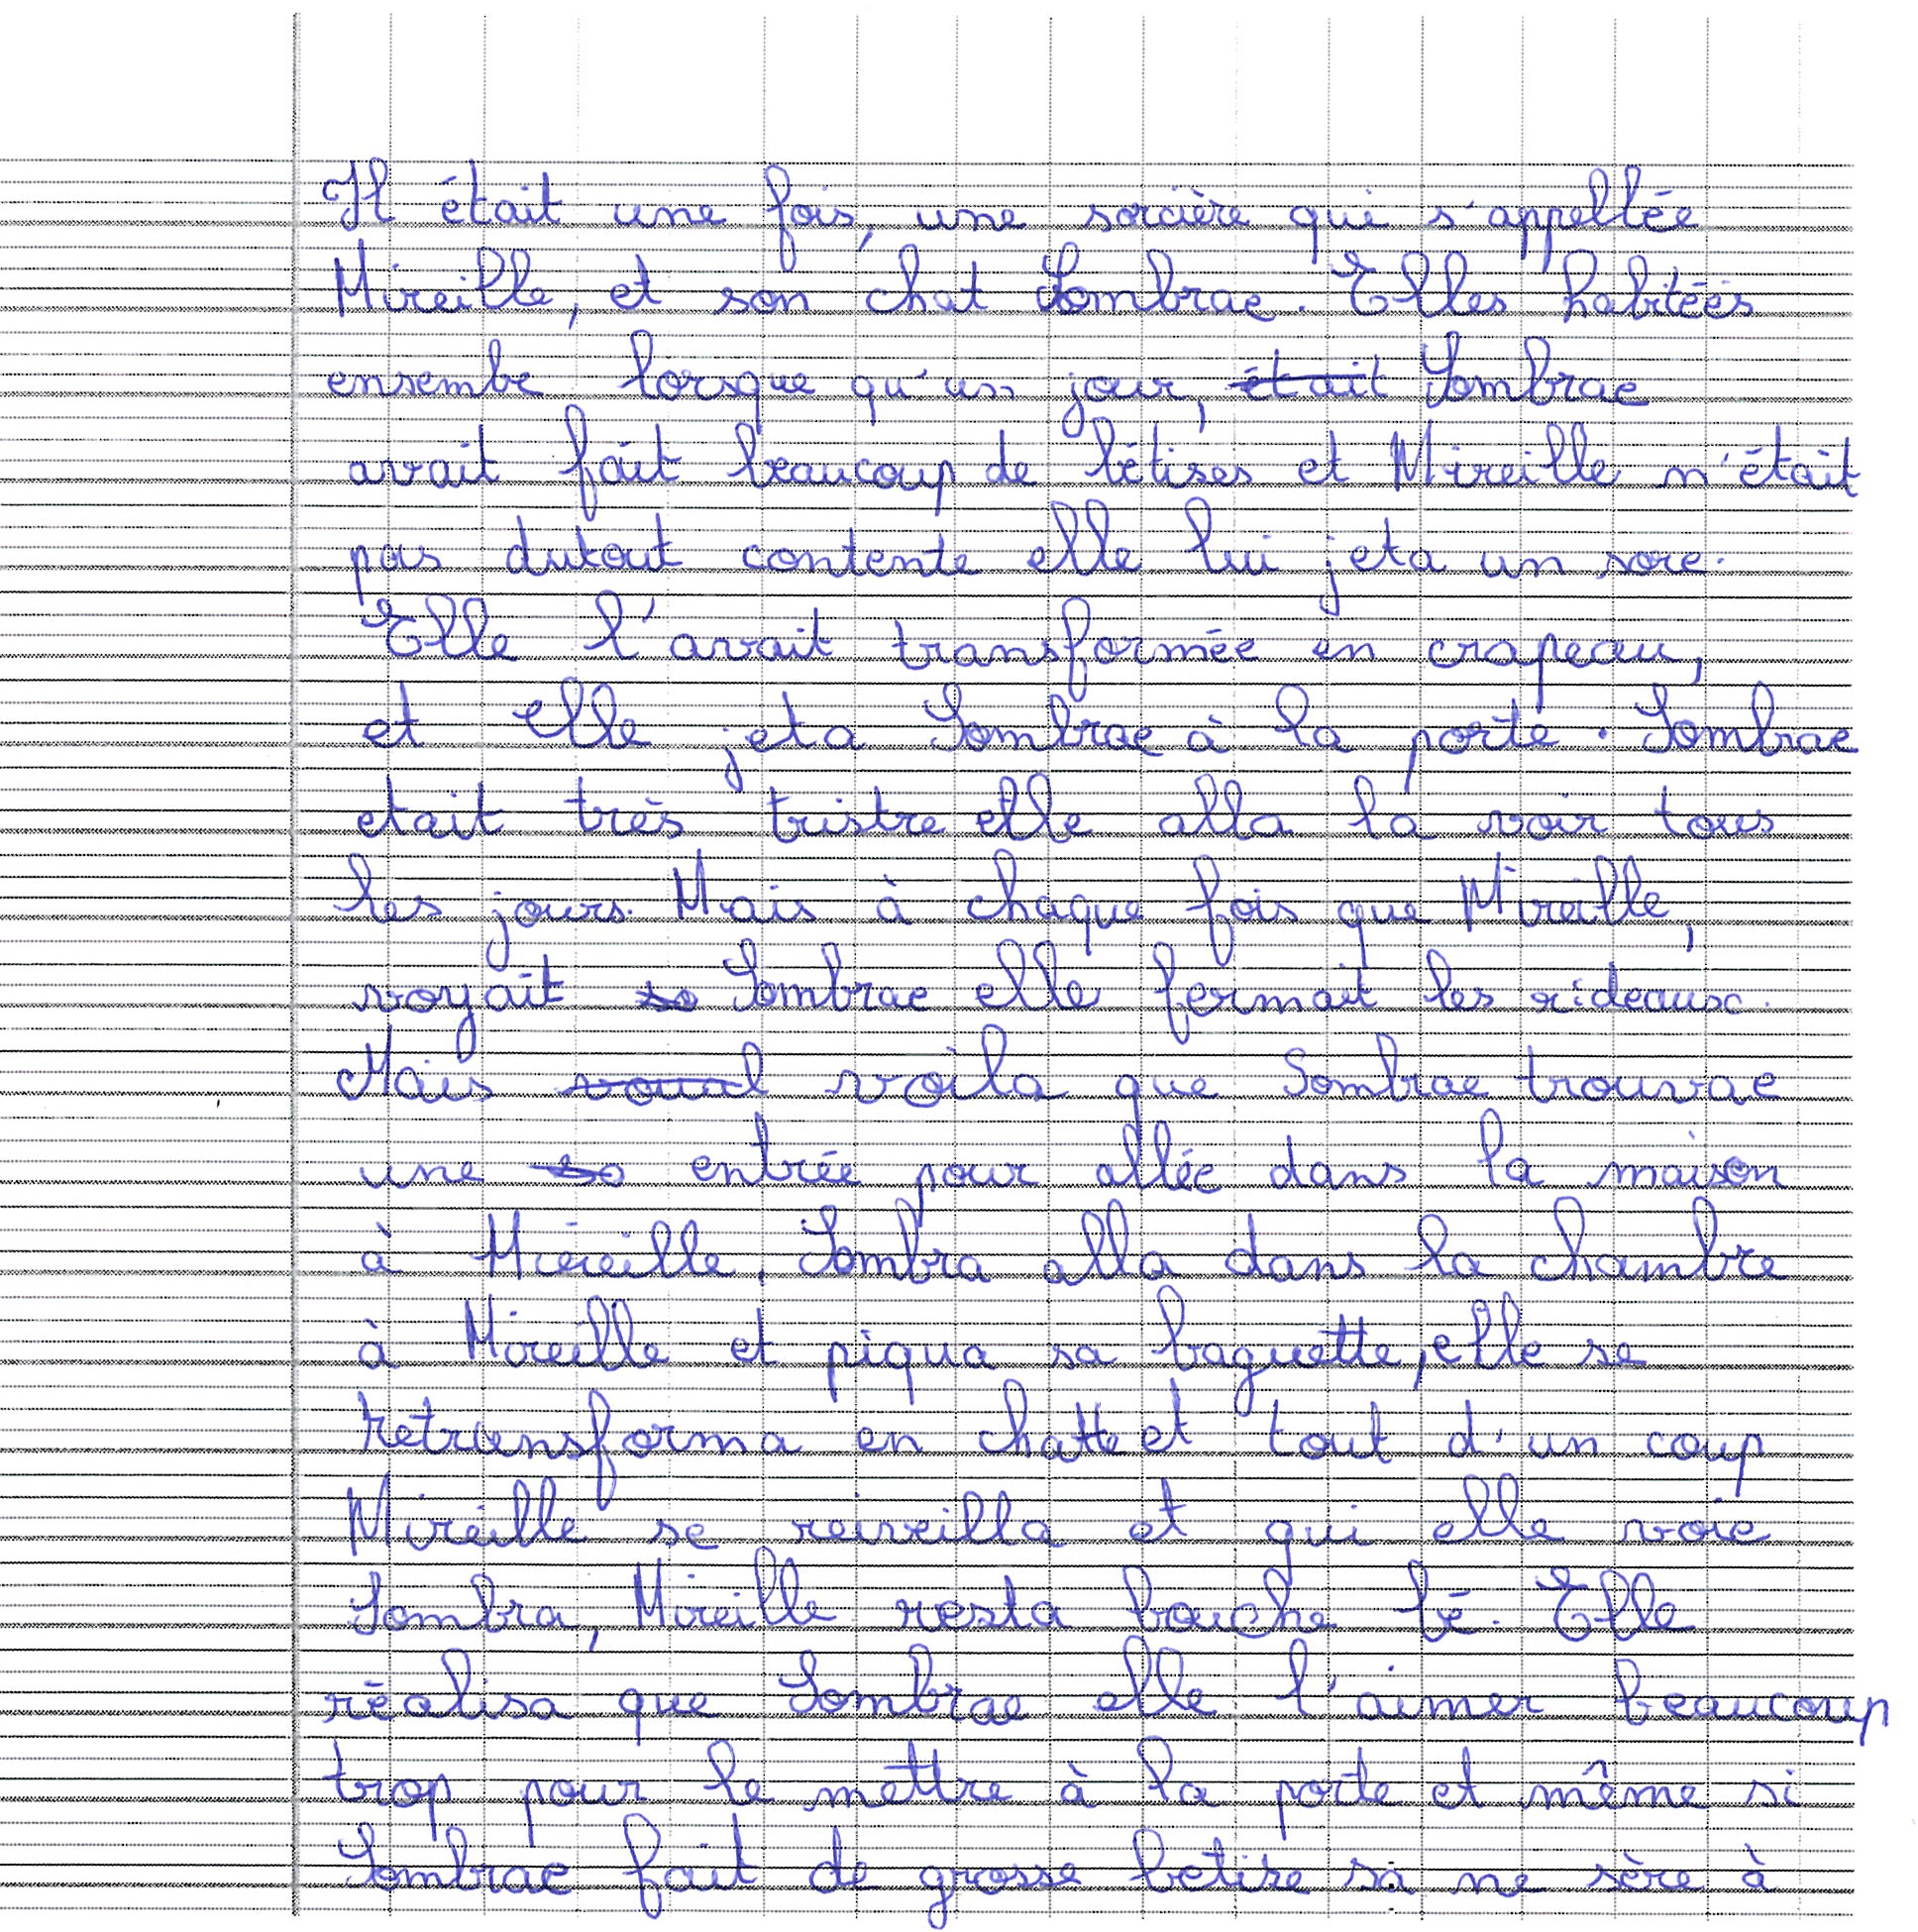 Il était une fois, une sorcière qui s'appellée
Mireille, et son chat Sombrae. Elles habitéés
ensembe lorsque qu'un jour, était Sombrae
avait fait beaucoup de bêtises et Mireille n'était
pas dutout contente elle lui jeta un sore.
Elle l'avait transformée en crapeau,
et elle jeta Sombrae à la porte. Sombrae
etait très tristre elle alla la voir tous
les jours. Mais à chaque fois que Mireille,
voyait so Sombrae elle fermait les rideaux.
Mais voual voila que Sombrae trouvae
une so entrée pour allée dans la maison
à Miereille. Sombra alla dans la chambre
à Mireille et piqua sa baguette, elle se
retransforma en chatte et tout d'un coup
Mireille se reiveilla et qui elle voie
Sombra, Mireille resta bouche bé. Elle
réalisa que Sombrae elle l'aimer beaucoup
trop pour le mettre à la porte et même si
Sombrae fait de grosse betise sa ne sère à